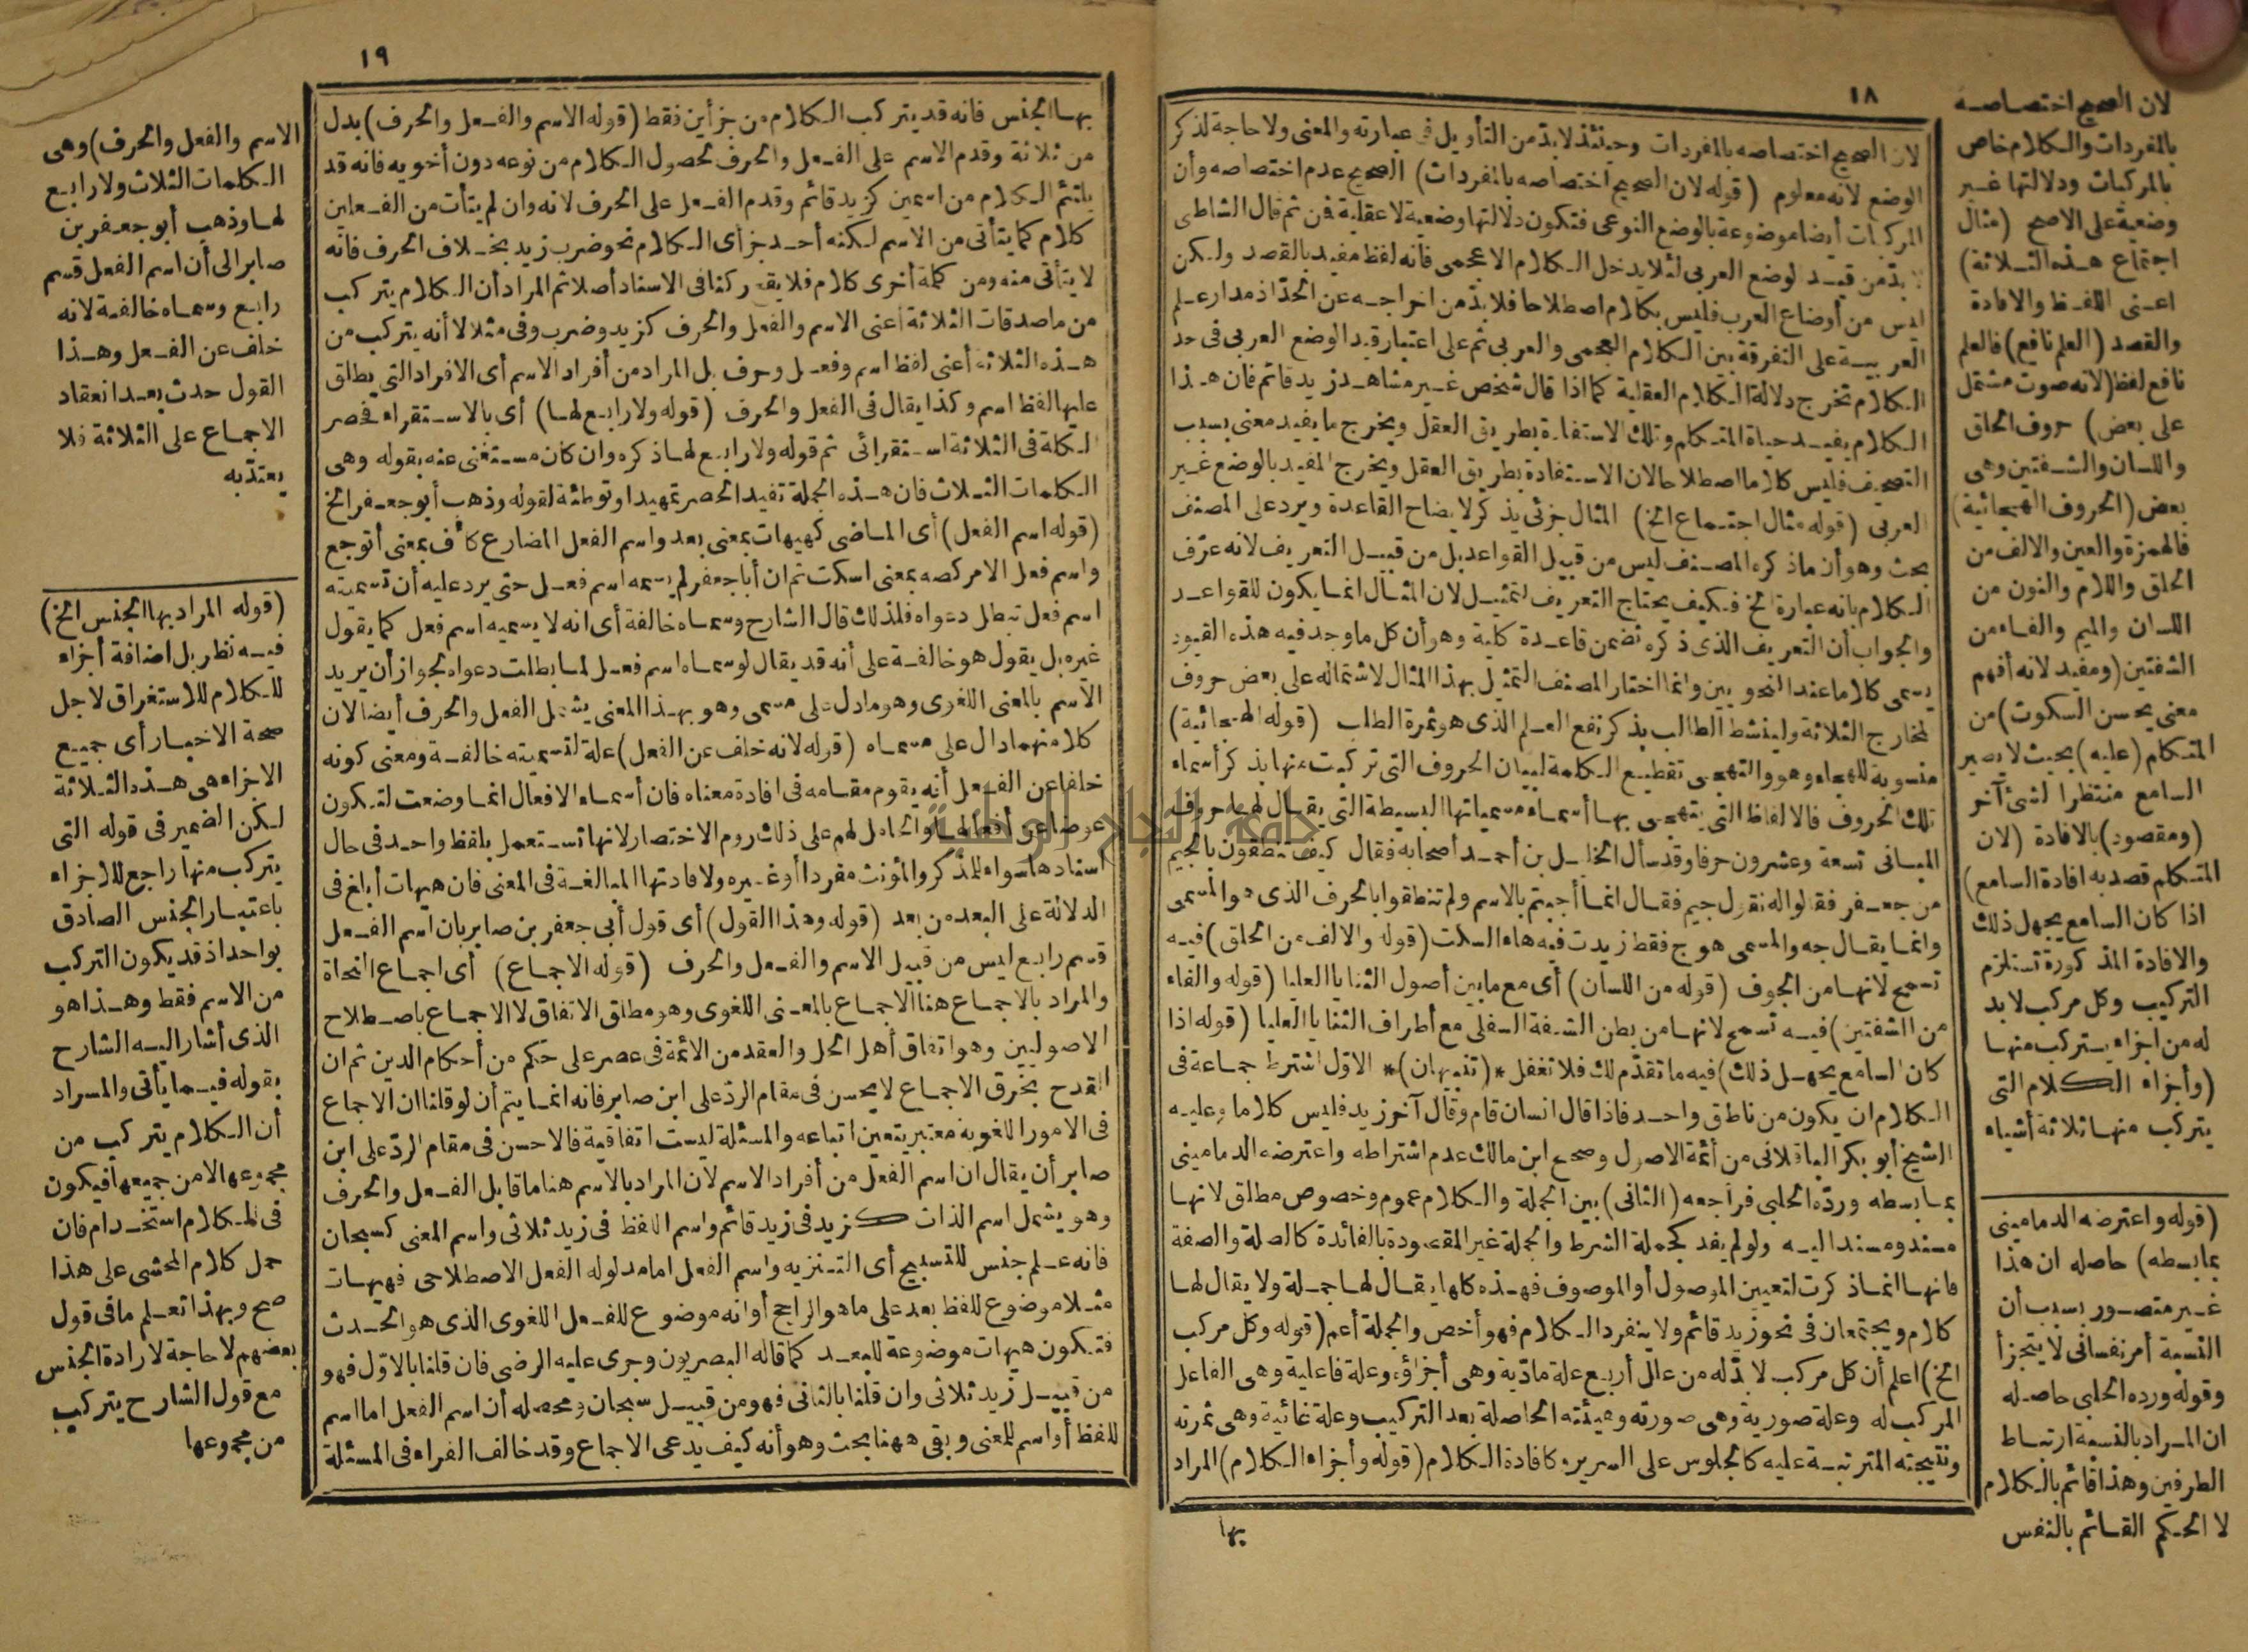 ١٨
لان الصحيح اختصاصه بالمفردات وحينئذ لابد من التأويل فى عبارته والمعنى ولا حاجة لذكر
الوضع لانه معلوم (قوله لان الصحيح اختصاصه بالمفردات) الصحيح عدم اختصاصه وأن
المركبات أيضا موضوعة بالوضع النوعى فتكون دلالتها وضعية لا عقلية فمن ثم قال الشاطى
لا بد من قيد لوضع العربى لئلا يدخل الكلام الاعجمى فانه لفظ مفيد بالقصد ولكن
ليس من أوضاع العرب فليس بكلام اصطلاحا فلا بد من اخراجه عن الحد اذ مدار علم
العربية على التفرقة بين الكلام العجمى والعربى ثم على اعتبار قيد الوضع العربى فى حد
الكلام تخرج دلالة الكلام العقلية كما اذا قال شخص غير مشاهد زيد قائم فان هذا
الكلام يفيد حياة المتكلم وتلك الاستفادة بطريق العقل ويخرج ما يفيد معنى بسبب
التصحيف فليس كلاما اصطلاحا لان الاستفادة بطريق العقل ويخرج المفيد بالوضع غير
العربى (قوله مثال اجتماع الخ) المثال جزئى يذكر لايضاح القاعدة ويرد على المصنف
بحث وهو أن ماذكره المصنف ليس من قبيل القواعد بل من قبيل التعريف لانه عرف
الكلام بانه عبارة الخ فكيف يحتاج التعريف لتمثيل لان المثال انما يكون للقواعد
والجواب أن التعريف الذى ذكره تضمن قاعدة كلية وهو أن كل ما وجد فيه هذه القيود
يسمى كلاما عند النحويين وانما اختار المصنف التمثيل بهذا المثال لاشتماله على بعض حروف
لمخارج الثلاثة ولينشط الطالب بذكر نفع العلم الذى هو ثمرة الطلب (قوله الهجائية)
منسوبة للهجاء وهو والتهجى تقطيع الكلمة لبيان الحروف التى تركبت منها بذكر أسماء
تلك الحروف فالالفاظ التى يتهجى بها أسماء مسمياتها البسيطة التى يقال لها حروف
المبانى تسعة وعشرون حرفا وقد سأل الخليل بن أحمد أصحابه فقال كيف تنطقون بالجيم
من جعفر فقالوا له نقول جيم فقال انما أجبتم بالاسم ولم تنطقوا بالحرف الذى هو المسمى
وانما يقال جه والمسمى هو ج فقط زيدت فيه هاء السكت (قوله والالف من الحلق) فيه
تسمح لانها من الجوف (قوله من اللسان) أى مع ما بين أصول الثنايا العليا (قوله والفاء
من الشفتين) فيه تسمح لانها من بطن الشفة السفلى مع أطراف الثنايا العليا (قوله اذا
كان السامع يجهل ذلك) فيه ما تقدم لك فلا تغفل *(تنبيهان)* الاول اشترط جماعة فى
الكلام ان يكون من ناطق واحد فاذا قال انسان قام وقال آخر زيد فليس كلاما وعليه
الشيخ أبو بكر الباقلانى من أئمة الاصول وصحح ابن مالك عدم اشتراطه واعترضه الدمامينى
بما بسطه ورده الحلبى فراجعه (الثانى) بين الجملة والكلام عموم وخصوص مطلق لانها
مسند ومسند اليه ولو لم يفد كجملة الشرط والجملة غير المقصودة بالفائدة كالصلة والصفة
فانها انما ذكرت لتعيين الموصول أو الموصوف فهذه كلها يقال لها جملة ولا يقال لها
كلام ويجتمعان فى نحو زيد قائم ولا ينفرد الكلام فهو أخص والجملة أعم (قوله وكل مركب
الخ) اعلم أن كل مركب لا بد له من علل أربع علة مادية وهى أجزاؤه وعلة فاعلية وهى الفاعل
المركب له وعلة صورية وهى صورته وهيئته الحاصلة بعد التركيب وعلة غائية وهى ثمرته
ونتيجته المترتبة عليه كالجلوس على السرير وكافادة الكلام (قوله وأجزاء الكلام) المراد
بها
لان الصحيح اختصاصه
بالمفردات والكلام خاص
بالمركبات ودلالتها غير
وضعية على الاصح (مثال
اجتماع هذه الثلاثة)
اعنى اللفظ والافادة
والقصد (العلم نافع) فالعلم
نافع لفظ (لانه صوت مشتمل
على بعض) حروف الحلق
واللسان والشفتين وهى
بعض (الحروف الهجائية)
فالهمزة والعين والالف من
الحلق واللام والنون من
اللسان والميم والفاء من
الشفتين (ومفيد لانه أفهم
معنى يحسن السكوت) من
المتكلم (عليه) بحيث لا يصير
السامع منتظرا لشئ آخر
(ومقصود) بالافادة (لان
المتكلم قصد به افادة السامع)
اذا كان السامع يجهل ذلك
والافادة المذكورة تستلزم
التركيب وكل مركب لابد
له من أجزاء يتركب منها
(وأجزاء الكلام التى
يتركب منها ثلاثة أشياء
(قوله واعترضه الدمامينى
بما بسطه) حاصله ان هذا
غير متصور بسبب أن
النسبة أمر نفسانى لا يتجزأ
وقوله ورده الحلبى حاصله
ان المراد بالنسبة ارتباط
الطرفين وهذا قائم بالكلام
لا الحكم القائم بالنفس
١٩
بها الجنس فانه قد يتركب الكلام من جزأين فقط (قوله الاسم والفعل والحرف) بدل
من ثلاثة وقدم الاسم على الفعل والحرف لحصول الكلام من نوعه دون أخويه فانه قد
يلتئم الكلام من اسمين كزيد قائم وقدم الفعل على الحرف لانه وان لم يتأت من الفعلين
كلام كما يتأتى من الاسم لكنه أحد جزأى الكلام نحو ضرب زيد بخلاف الحرف فانه
لا يتأتى منه ومن كلمة أخرى كلام فلا يقع ركنا فى الاسناد أصلا ثم المراد أن الكلام يتركب
من ماصدقات الثلاثة أعنى الاسم والفعل والحرف كزيد وضرب وفى مثلا لا أنه يتركب من
هذه الثلاثة أعنى لفظ اسم وفعل وحرف بل المراد من أفراد الاسم أى الافراد التى يطلق
عليها لفظ اسم وكذا يقال فى الفعل والحرف (قوله ولا رابع لها) أى بالاستقراء فحصر
الكلمة فى الثلاثة استقرائى ثم قوله ولا رابع لها ذكره وان كان مستغنى عنه بقوله وهى
الكلمات الثلاث فان هذه الجملة تفيد الحصر تمهيدا وتوطئة لقوله وذهب أبو جعفر الخ
(قوله اسم الفعل) أى الماضى كهيهات بمعنى بعد واسم الفعل المضارع كأف بمعنى أتوجع
واسم فعل الامر كصه بمعنى اسكت ثم ان أبا جعفر لم يسمه اسم فعل حتى يرد عليه أن تسميته
اسم فعل تبطل دعواه فلذلك قال الشارح وسماه خالفة أى انه لا يسميه اسم فعل كما يقول
غيره بل يقول هو خالفة على أنه قد يقال لو سماه اسم فعل لما بطلت دعواه لجواز أن يريد
الاسم بالمعنى اللغوى وهو ما دل على مسمى وهو بهذا المعنى يشمل الفعل والحرف أيضا لان
كلا منهما دال على مسماه (قوله لانه خلف عن الفعل) علة لتسميته خالفة ومعنى كونه
خلفا عن الفعل أنه يقوم مقامه فى افادة معناه فان أسماء الافعال انما وضعت لتكون
عوضا عن أفعالها والحامل لهم على ذلك روم الاختصار لانها تستعمل بلفظ واحد فى حال
اسنادها سواء للمذكر والمؤنث مفردا أو غيره ولافادتها المبالغة فى المعنى فان هيهات أبلغ فى
الدلالة على البعد من بعد (قوله وهذا القول) أى قول أبى جعفر بن صابر بان اسم الفعل
قسم رابع ليس من قبيل الاسم والفعل والحرف (قوله الاجماع) أى اجماع النحاة
والمراد بالاجماع هنا الاجماع بالمعنى اللغوى وهو مطلق الاتفاق لا الاجماع باصطلاح
الاصوليين وهو اتفاق أهل الحل والعقد من الائمة فى عصر على حكم من أحكام الدين ثم ان
القدح بخرق الاجماع لا يحسن فى مقام الرد على ابن صابر فانه انما يتم أن لو قلنا ان الاجماع
فى الامور اللغوية معتبر يتعين اتباعه والمسئلة ليست اتفاقية فالاحسن فى مقام الرد على ابن
صابر أن يقال ان اسم الفعل من أفراد الاسم لان المراد بالاسم هنا ما قابل الفعل والحرف
وهو يشمل اسم الذات كزيد فى زيد قائم واسم اللفظ فى زيد ثلاثى واسم المعنى كسبحان
فانه علم جنس للتسبيح أى التنزيه واسم الفعل اما مدلوله الفعل الاصطلاحى فهيهات
مثلا موضوع للفظ بعد على ما هو الراجح أو انه موضوع للفعل اللغوى الذى هو الحدث
فتكون هيهات موضوعة للبعد كما قاله البصريون وجرى عليه الرضى فان قلنا بالاول فهو
من قبيل زيد ثلاثى وان قلنا بالثانى فهو من قبيل سبحان ومحصله أن اسم الفعل اما اسم
للفظ أو اسم للمعنى وبقى ههنا بحث وهو أنه كيف يدعى الاجماع وقد خالف الفراء فى المسئلة
الاسم والفعل والحرف) وهى
الكلمات الثلاث ولا رابع
لها وذهب أبو جعفر بن
صابر الى أن اسم الفعل قسم
رابع وسماه خالفة لانه
خلف عن الفعل وهذا
القول حدث بعد انعقاد
الاجماع على الثلاثة فلا
يعتد به
(قوله المراد بها الجنس الخ)
فيه نظر بل اضافة أجزاء
للكلام للاستغراق لاجل
صحة الاخبار أى جميع
الاجزاء هى هذه الثلاثة
لكن الضمير فى قوله التى
يتركب منها راجع للاجزاء
باعتبار الجنس الصادق
بواحد اذ قد يكون التركب
من الاسم فقط وهذا هو
الذى أشار اليه الشارح
بقوله فيما يأتى والمراد
أن الكلام يتركب من
مجموعها لا من جميعها فيكون
فى الكلام استخدام فان
حمل كلام المحشى على هذا
صح وبهذا تعلم ما فى قول
بعضهم لا حاجة لارادة الجنس
مع قول الشارح يتركب
من مجموعها
جامعة النجاح الوطنية